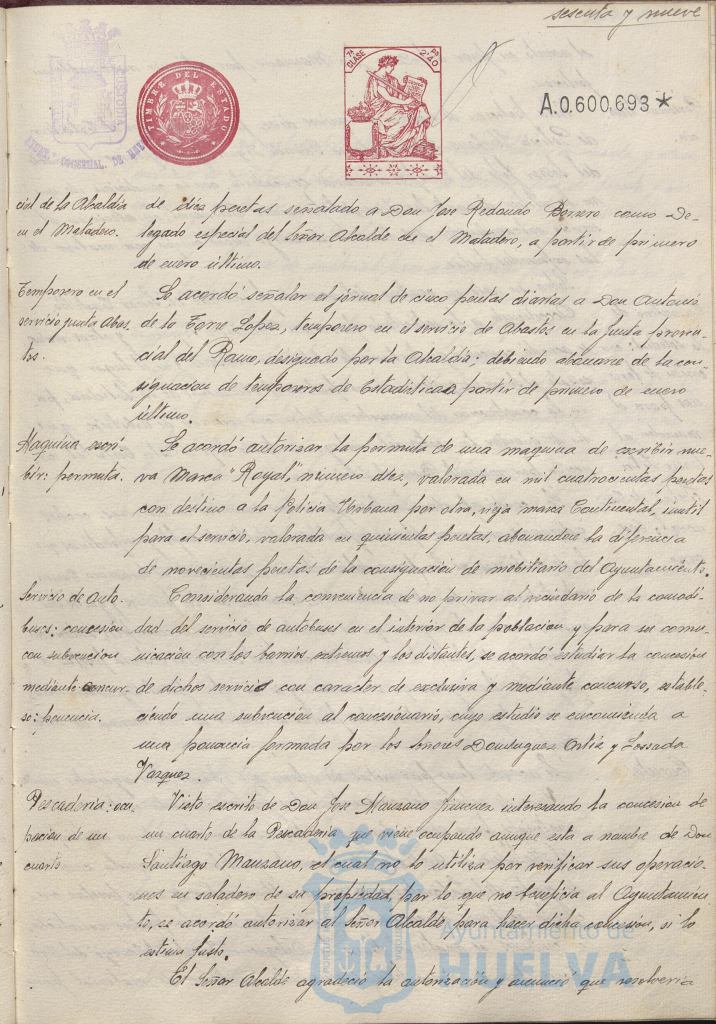 sesenta y nueve
TIMBRE DEL ESTADO
7ª CLASE
2'40
A.0.600,693*
cial de la Alcaldia
en el Matadero.
de diez pesetas señalado a Don Jose Redondo Borrero como De-
legado especial del Señor Alcalde en el Matadero, a partir de primero
de enero último.
Temporero en el
servicio junta Abas-
tos.
Se acordó señalar el jornal de cinco pesetas diarias a Don Antonio
de la Torre Lopez, temporero en el servicio de Abastos en la Junta provin-
cial del Ramo, designado por la Alcaldia; debiendo abonarse de la con-
signacion de temporeros de Estadistica a partir de primero de enero
último.
Maquina escri-
bir: permuta.
Se acordó autorizar la permuta de una maquina de escribir nue-
va Marca "Royal", número diez, valorada en mil cuatrocientas pesetas
con destino a la Policia Urbana por otra, vieja marca Continental, inutil
para el servicio, valorada en quinientas pesetas, abonandose la diferencia
de novecientas pesetas de la consignacion de mobiliario del Ayuntamiento.
Servicio de auto-
buses: concesion
con subvencion
mediante concur-
so: ponencia.
Considerando la conveniencia de no privar al vecindario de la comodi-
dad del servicio de autobuses en el interior de la poblacion y para su comu-
nicacion con los barrios extremos y los distantes, se acordó estudiar la concesion
de dichos servicios con caracter de exclusiva y mediante concurso, estable-
ciendo una subvencion al concesionario, cuyo estudio se encomienda a
una ponencia formada por los señores Dominguez Ortiz y Losada
Vazquez.
Pescaderia: ocu-
pacion de un
cuarto
Visto escrito de Don Jose Manzano Jimenez interesando la concesion de
un cuarto de la Pescaderia que viene ocupando aunque esta a nombre de Don
Santiago Manzano, el cual no lo utiliza por verificar sus operacio-
nes en saladero de su propiedad, por lo que no beneficia al Ayuntamien-
to, se acordó autorizar al Señor Alcalde para hacer dicha concesion, si lo
estima justo.
El Señor Alcalde agradeció la autorización y anunció que resolveria
Ayuntamiento de
HUELVA